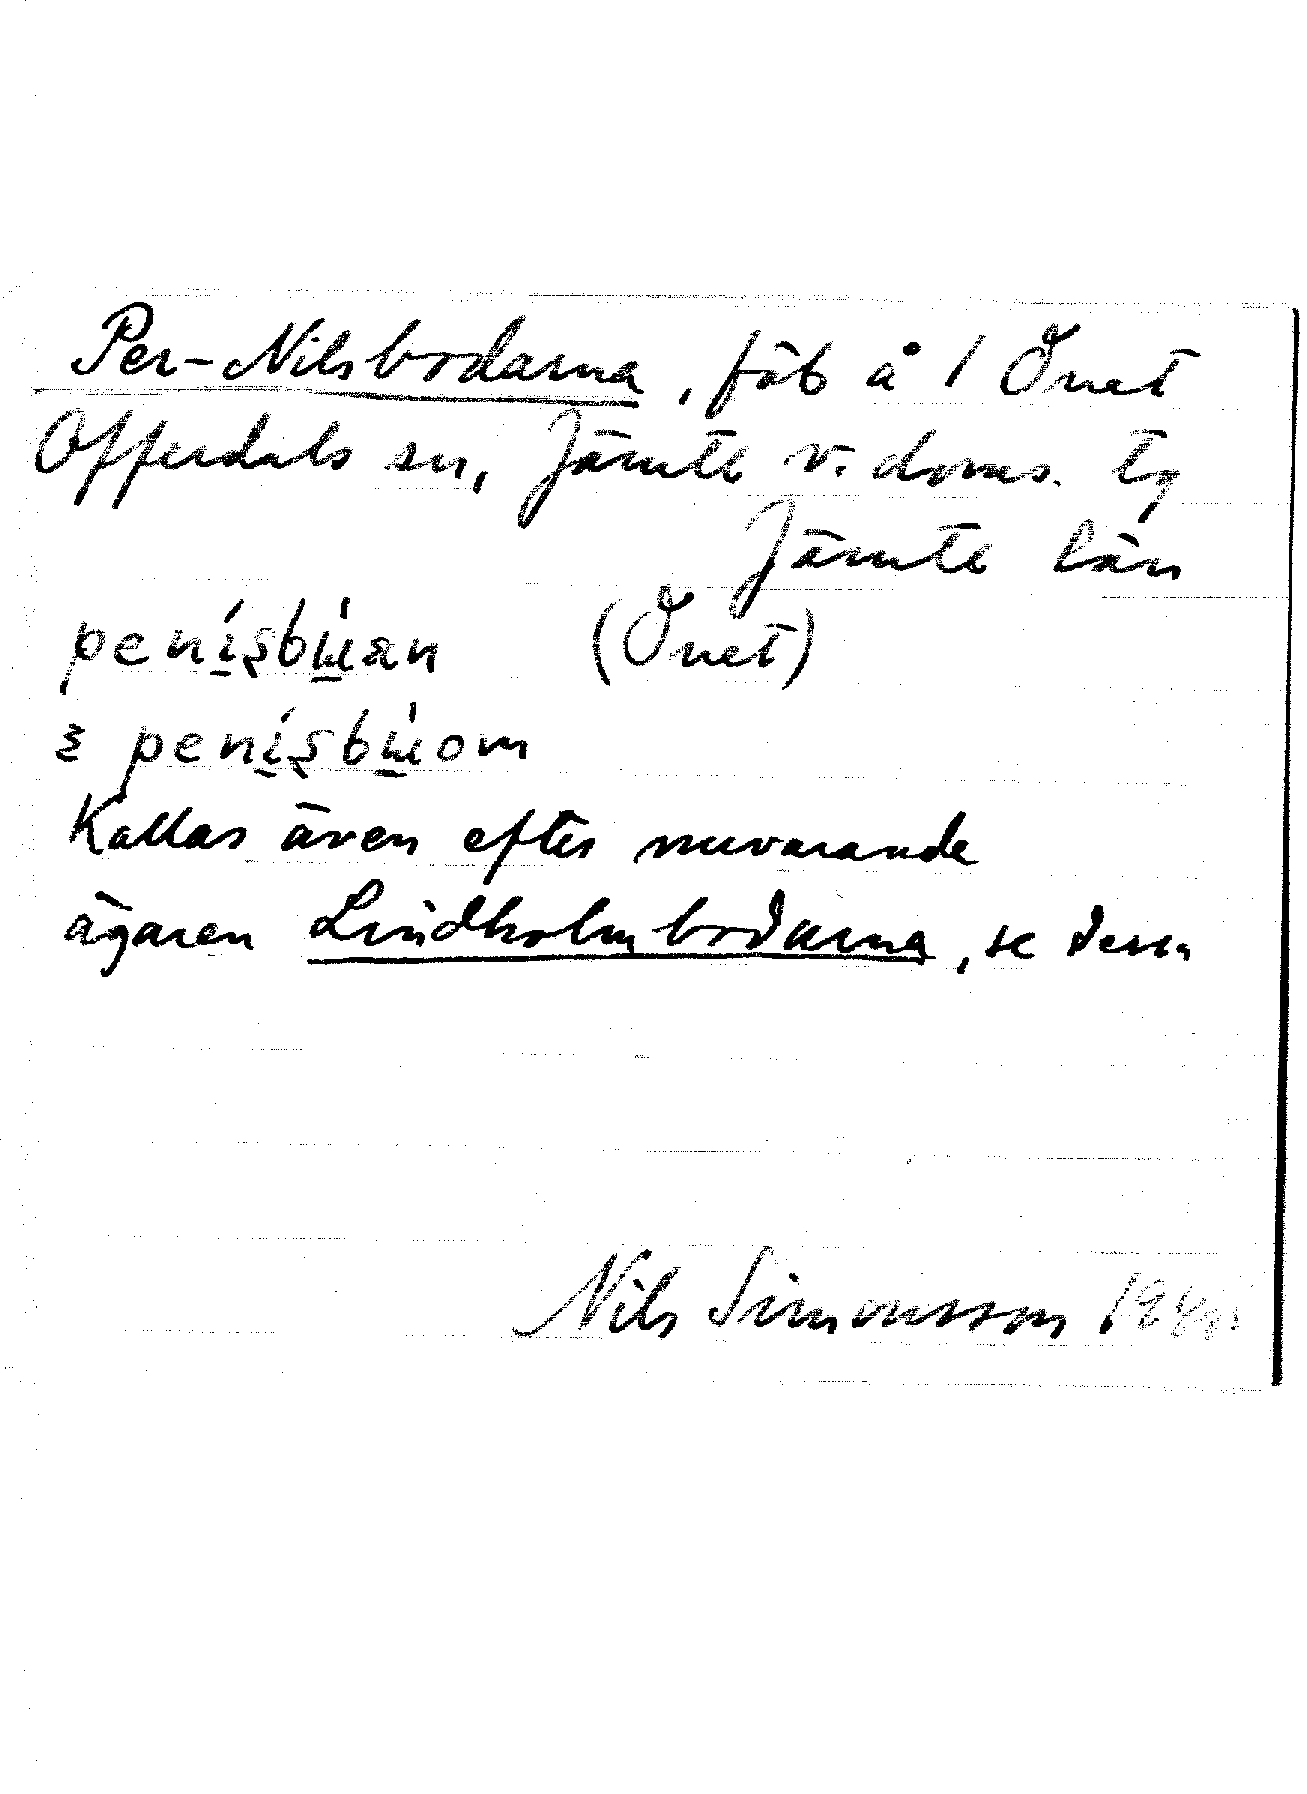 Per-Nilsbodarna, fäb å 1 Önet
Offerdals sn, Jämtl v. doms. tg
Jämtl län
(Önet)
Kallas även efter nuvarande
ägaren Lindholmbodarna, se dessa
Nils Simonsson